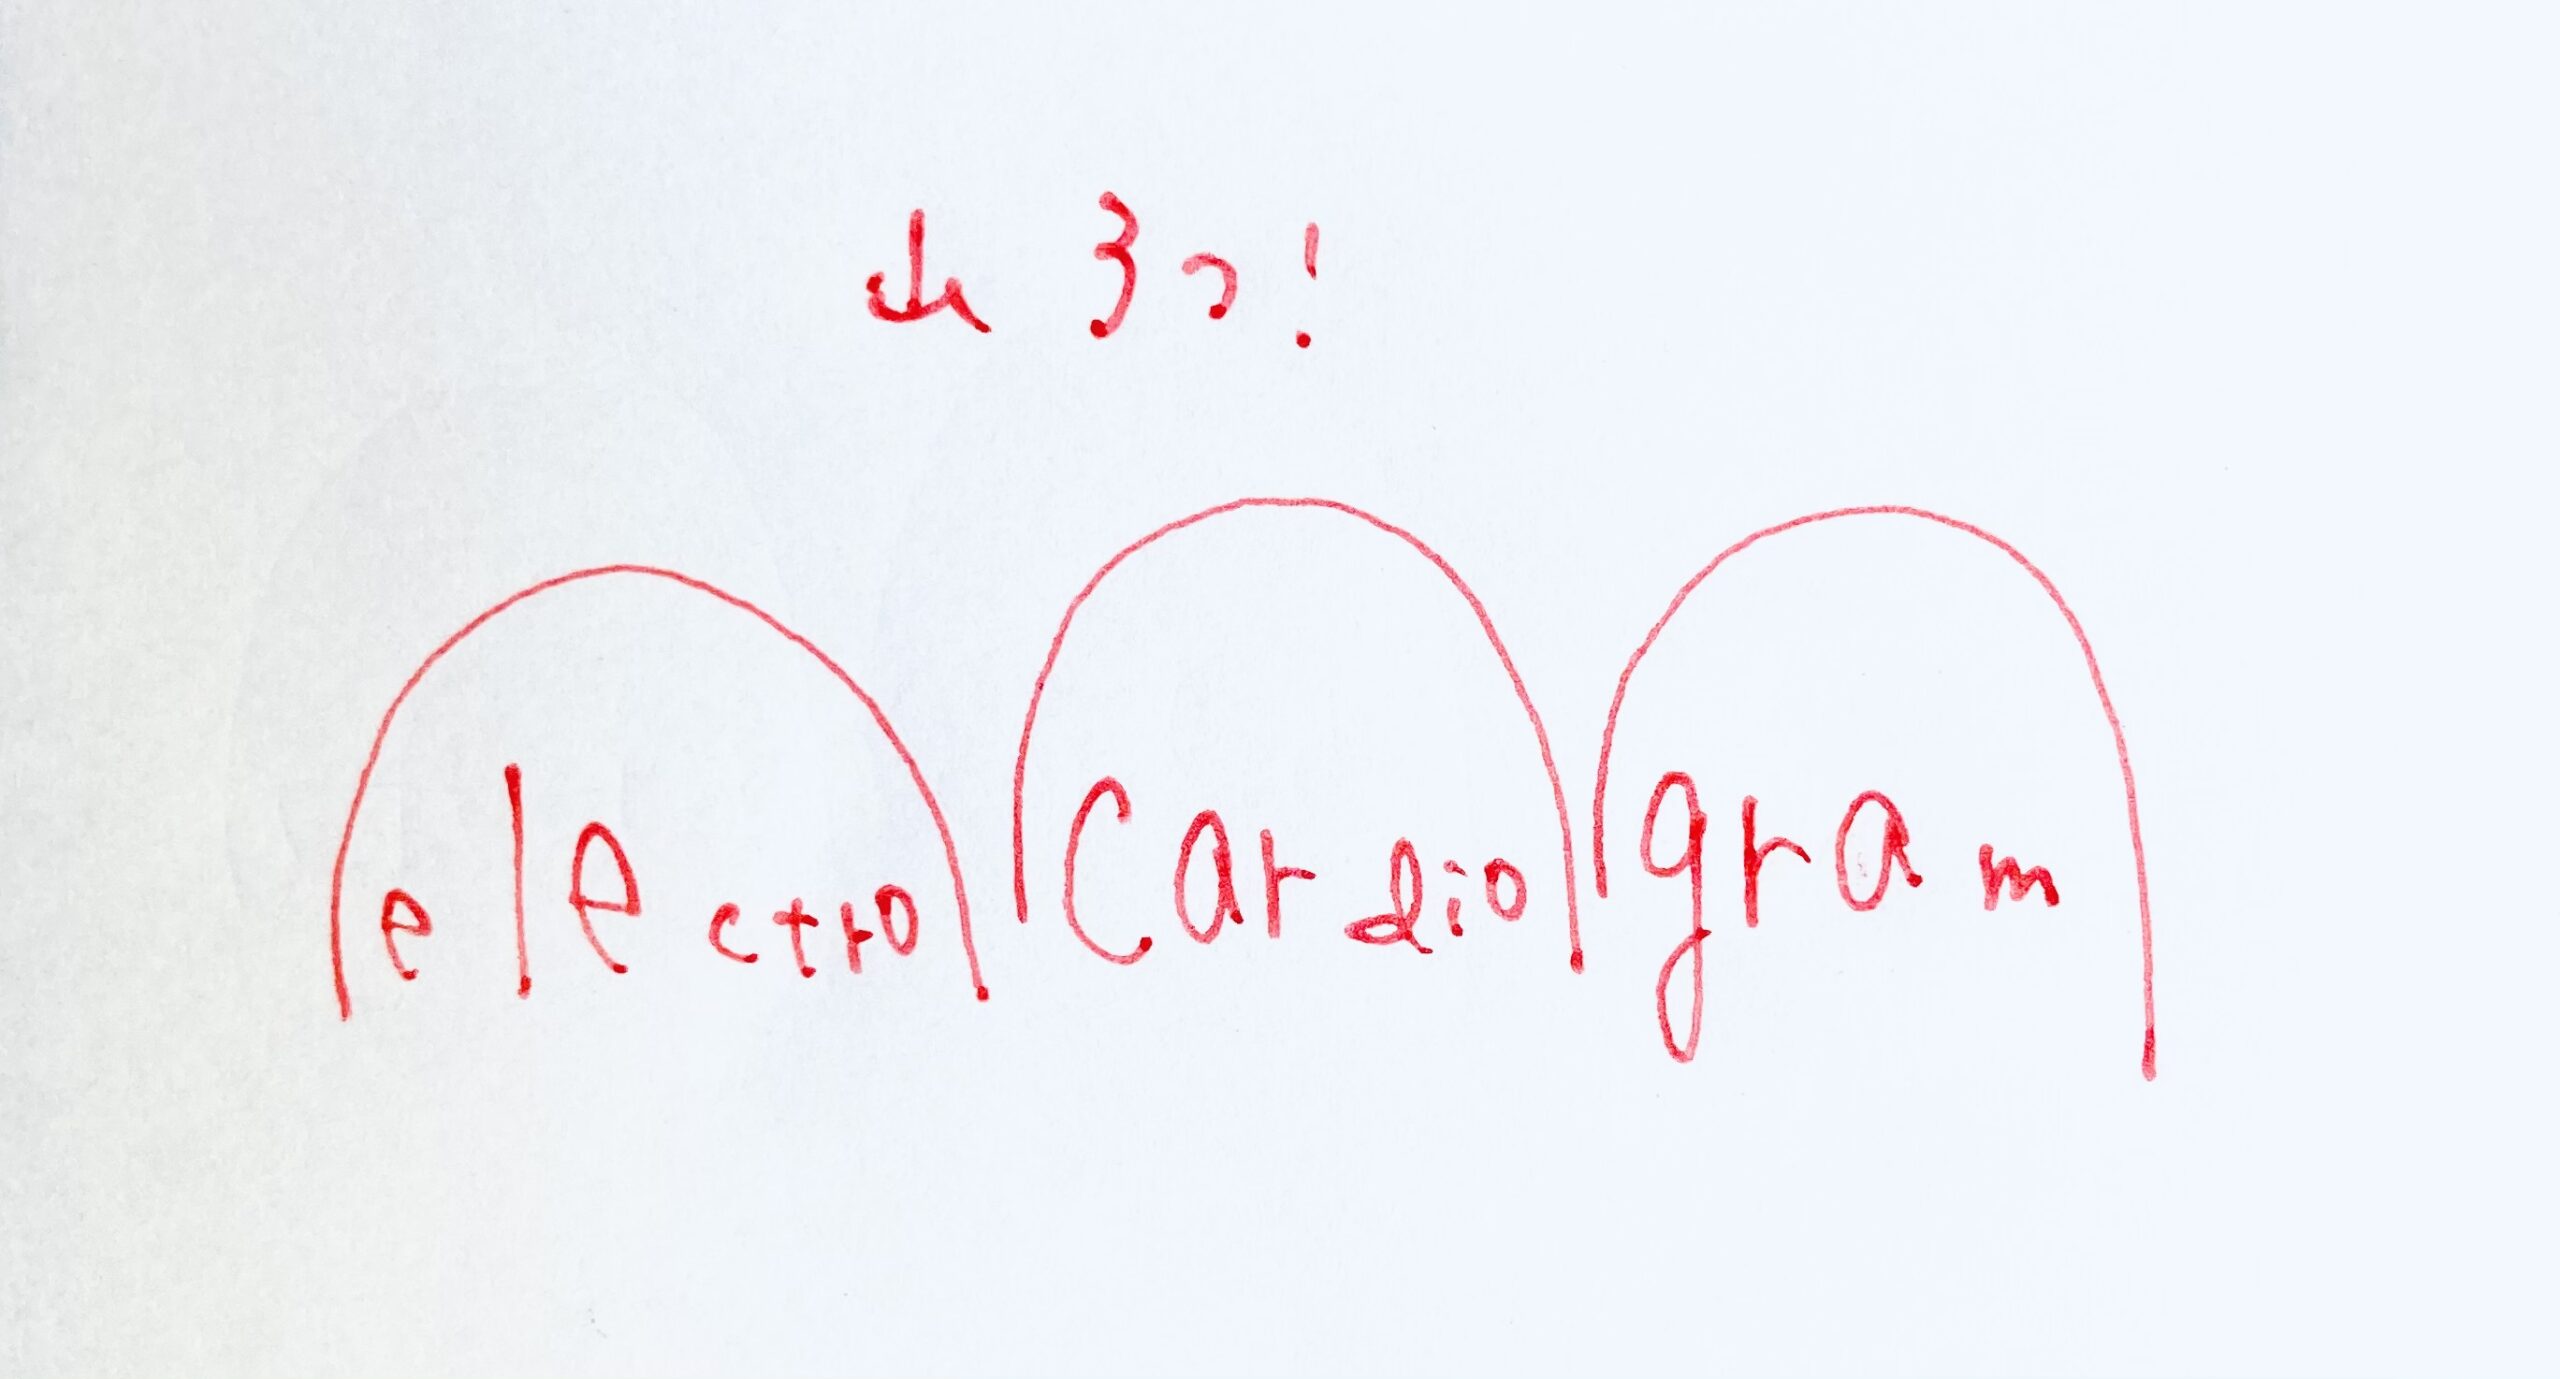 山 3つ!
electro cardio gram